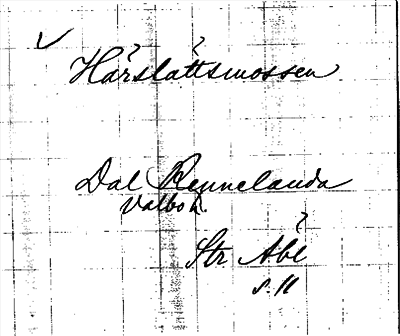 ✓ Hårslåttsmossen
Dal Rennelanda
Valbo h.
Str Åbl
s. 11